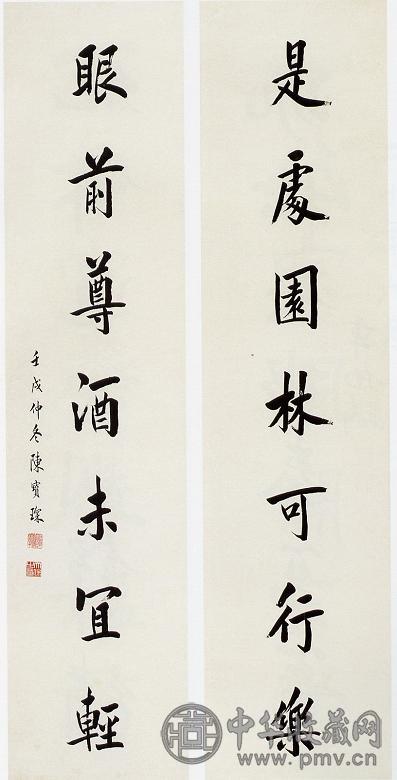 是處園林可行樂
眼前尊酒未宜輕
壬戌仲冬陳寶琛
中华收藏网
www.pmv.cn